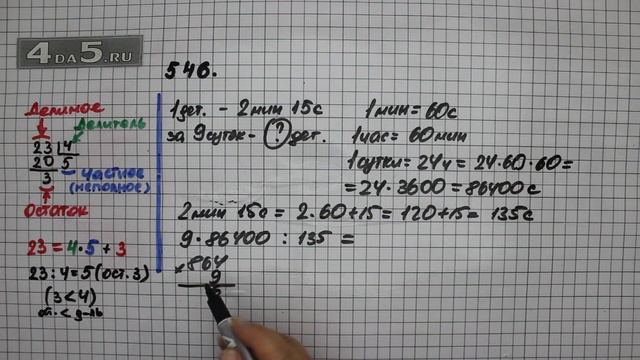 4DA5.RU
546.
Делимое
Делитель
23 | 4
20   5
3
Частное
(неполное)
Остаток
23 = 4·5 + 3
23 : 4 = 5 (ост. 3)
(3 < 4)
ост. < д-ль
1 дет. - 2 мин 15 с
за 9 суток - ? дет.
1 мин = 60 с
1 час = 60 мин
1 сутки = 24 ч = 24·60·60 =
= 24·3600 = 86400 с
2 мин 15 с = 2·60+15 = 120+15 = 135 с
9·86400 : 135 =
× 864
9